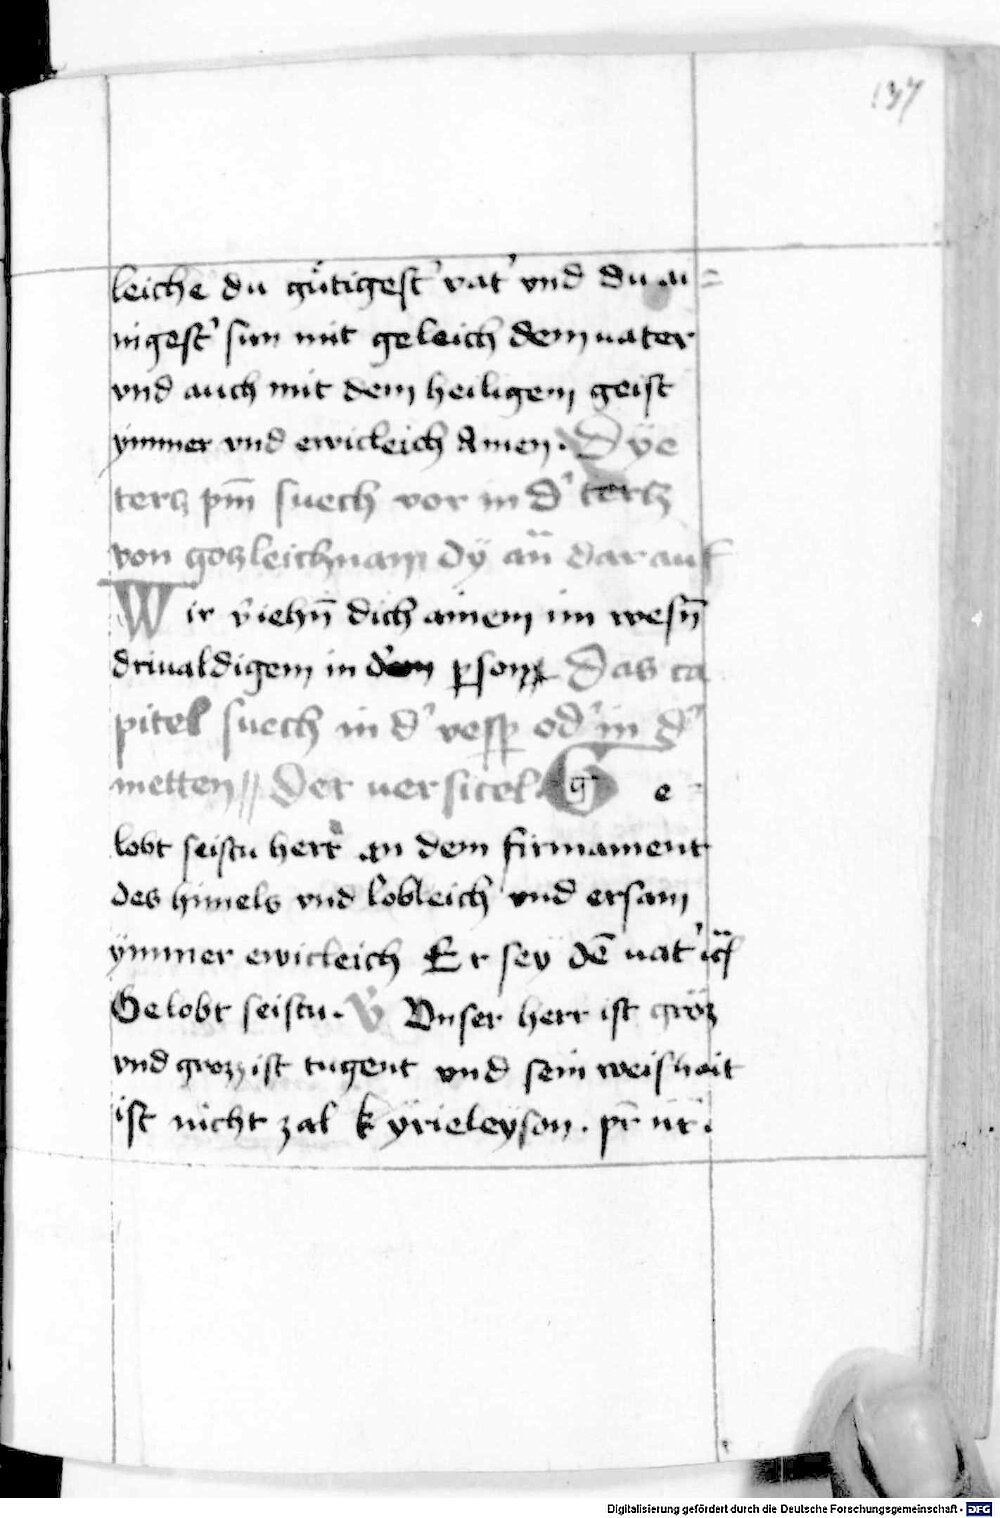 137
leiche du gütigest' vat' vnd du ai=
nigest' sun mit geleich dem vater
vnd auch mit dem heiligem geist
ymmer vnd ewicleich Amen. Dye
tercz psm̄ suech vor in d' tercz
von goczleichnam dÿ an̄ darauf
Wir v'iehn̄ dich ainem im wesn̄
driualdigem in den person Das ca
pitel suech in d' vesp od' in d'
metten // Der versicel. Ge
lobt seistu herr an dem firmament
des himels vnd lobleich vnd ersam
ymmer ewicleich Er sey dē vat'
Gelobt seistu. V Vnser herr ist groz
vnd grozz ist tugent vnd sein weishait
ist nicht zal kyrieleyson. pr̄ nr̄.
Digitalisierung gefördert durch die Deutsche Forschungsgemeinschaft - DFG